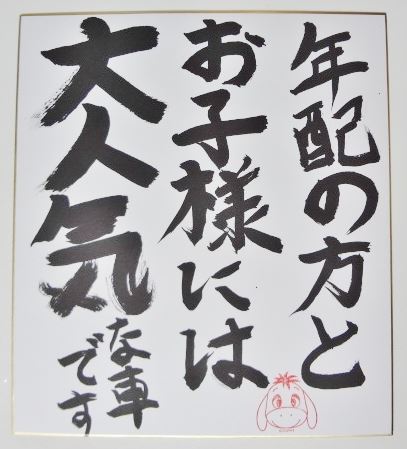 年配の方と
お子様には
大人気な車
です